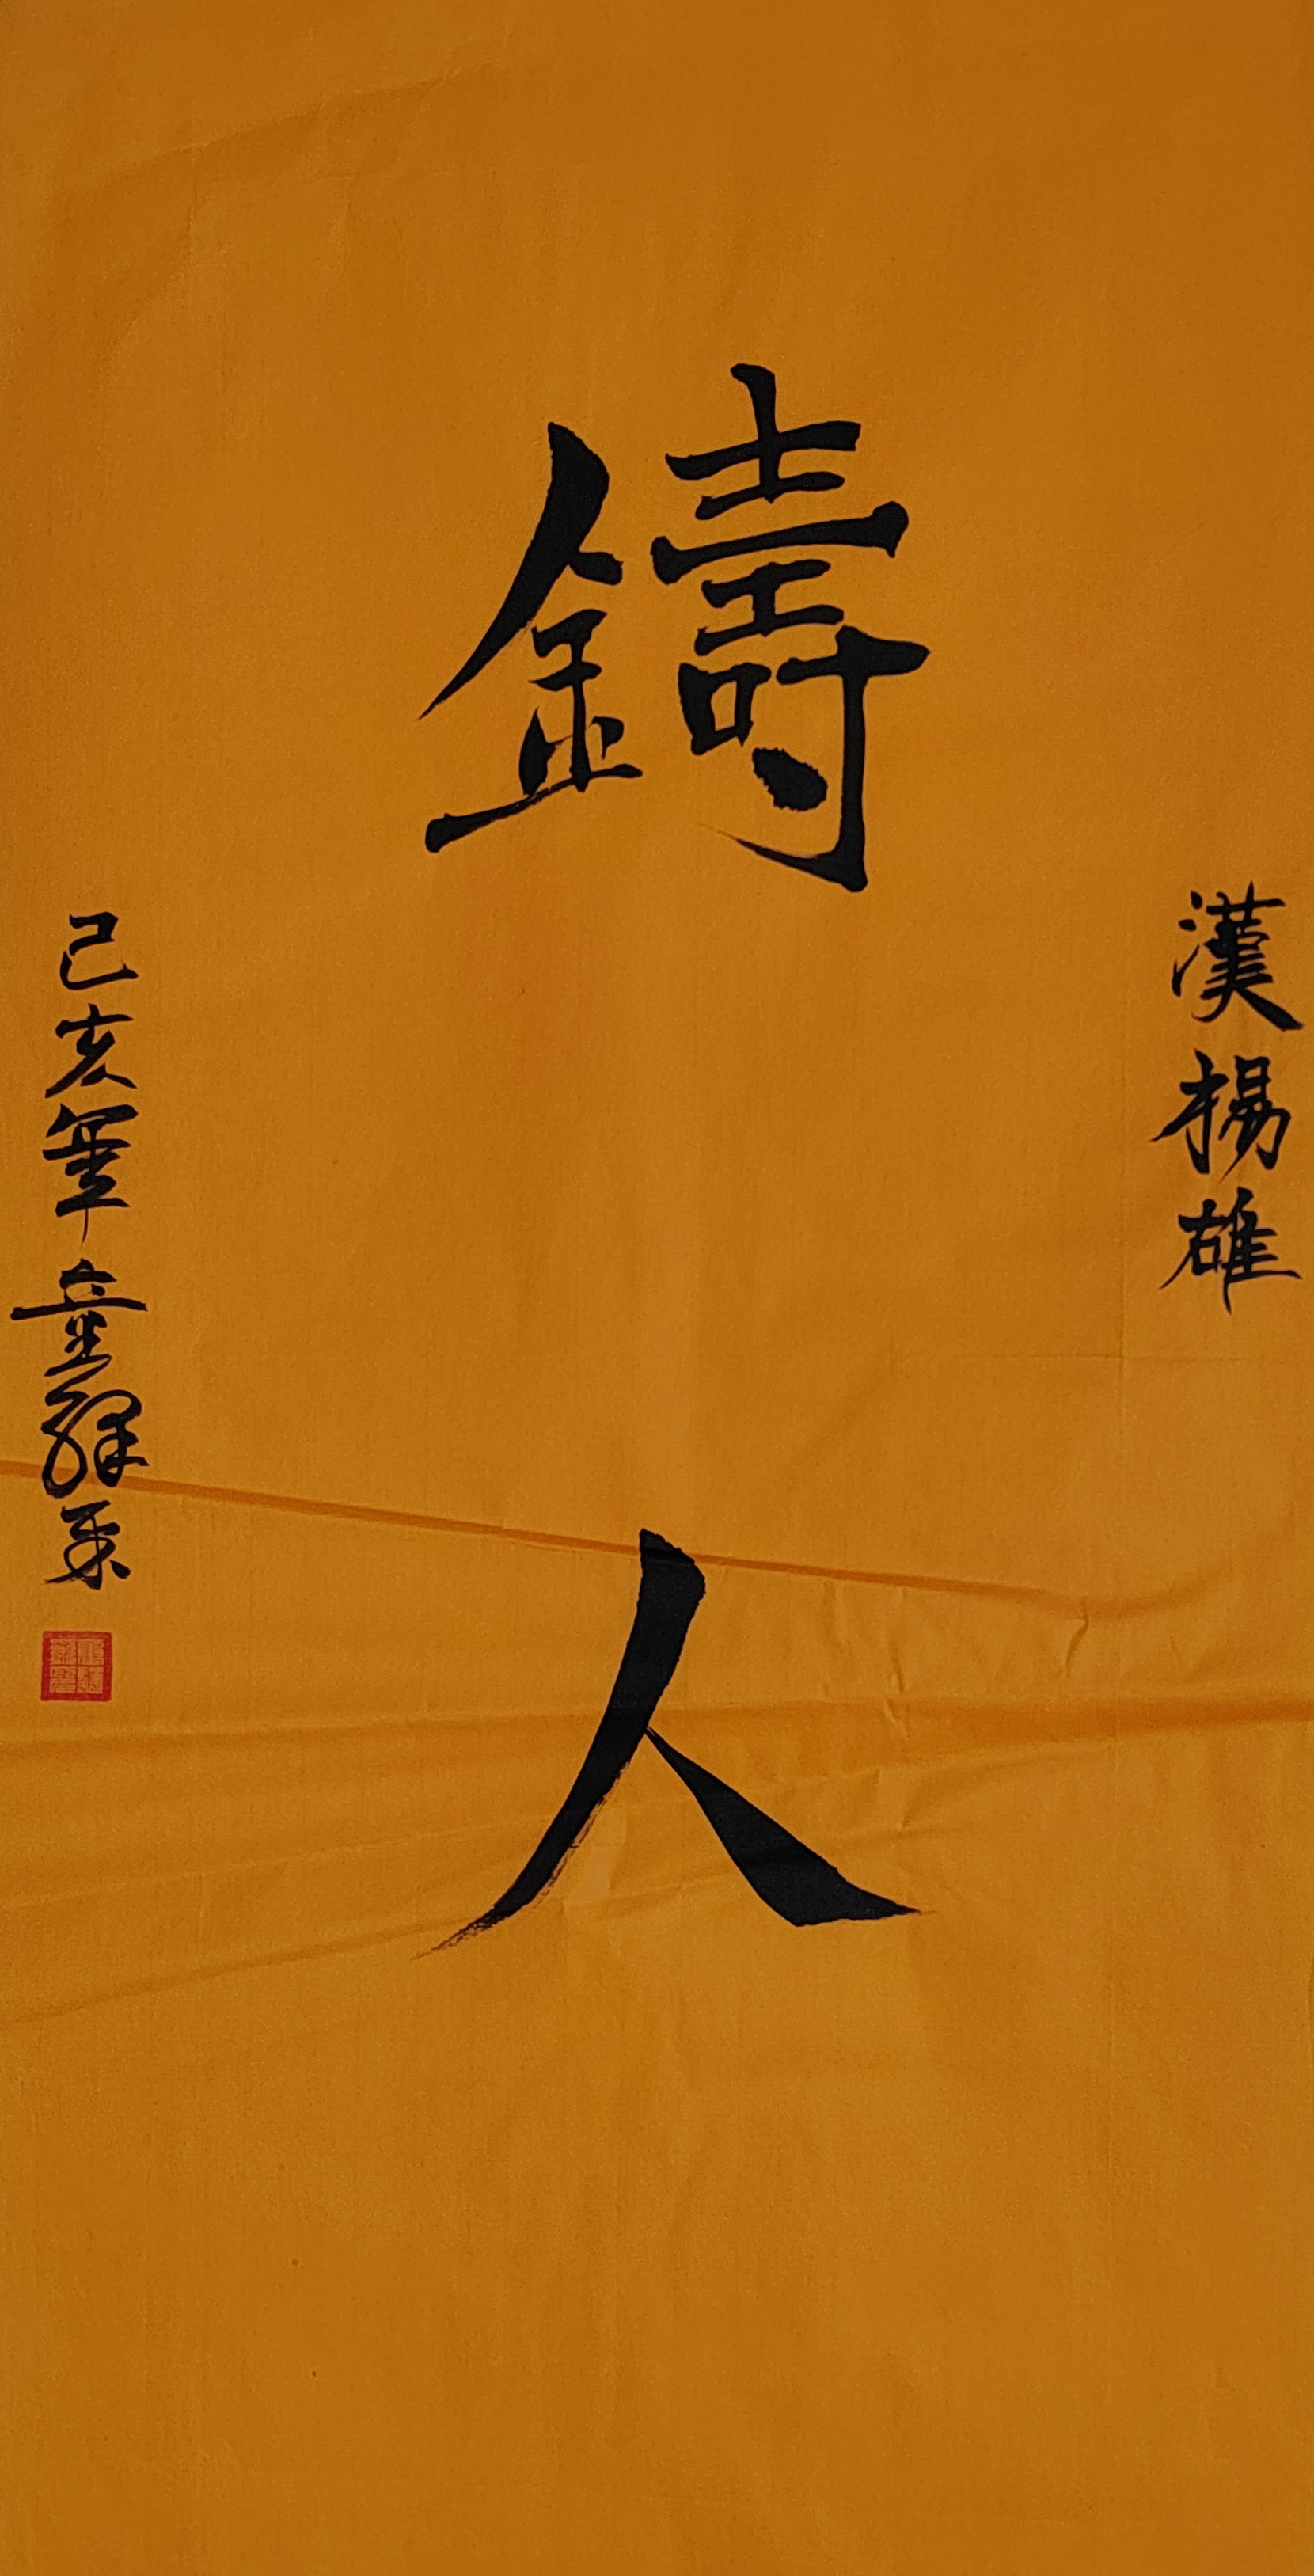 漢楊雄
鑄人
己亥年